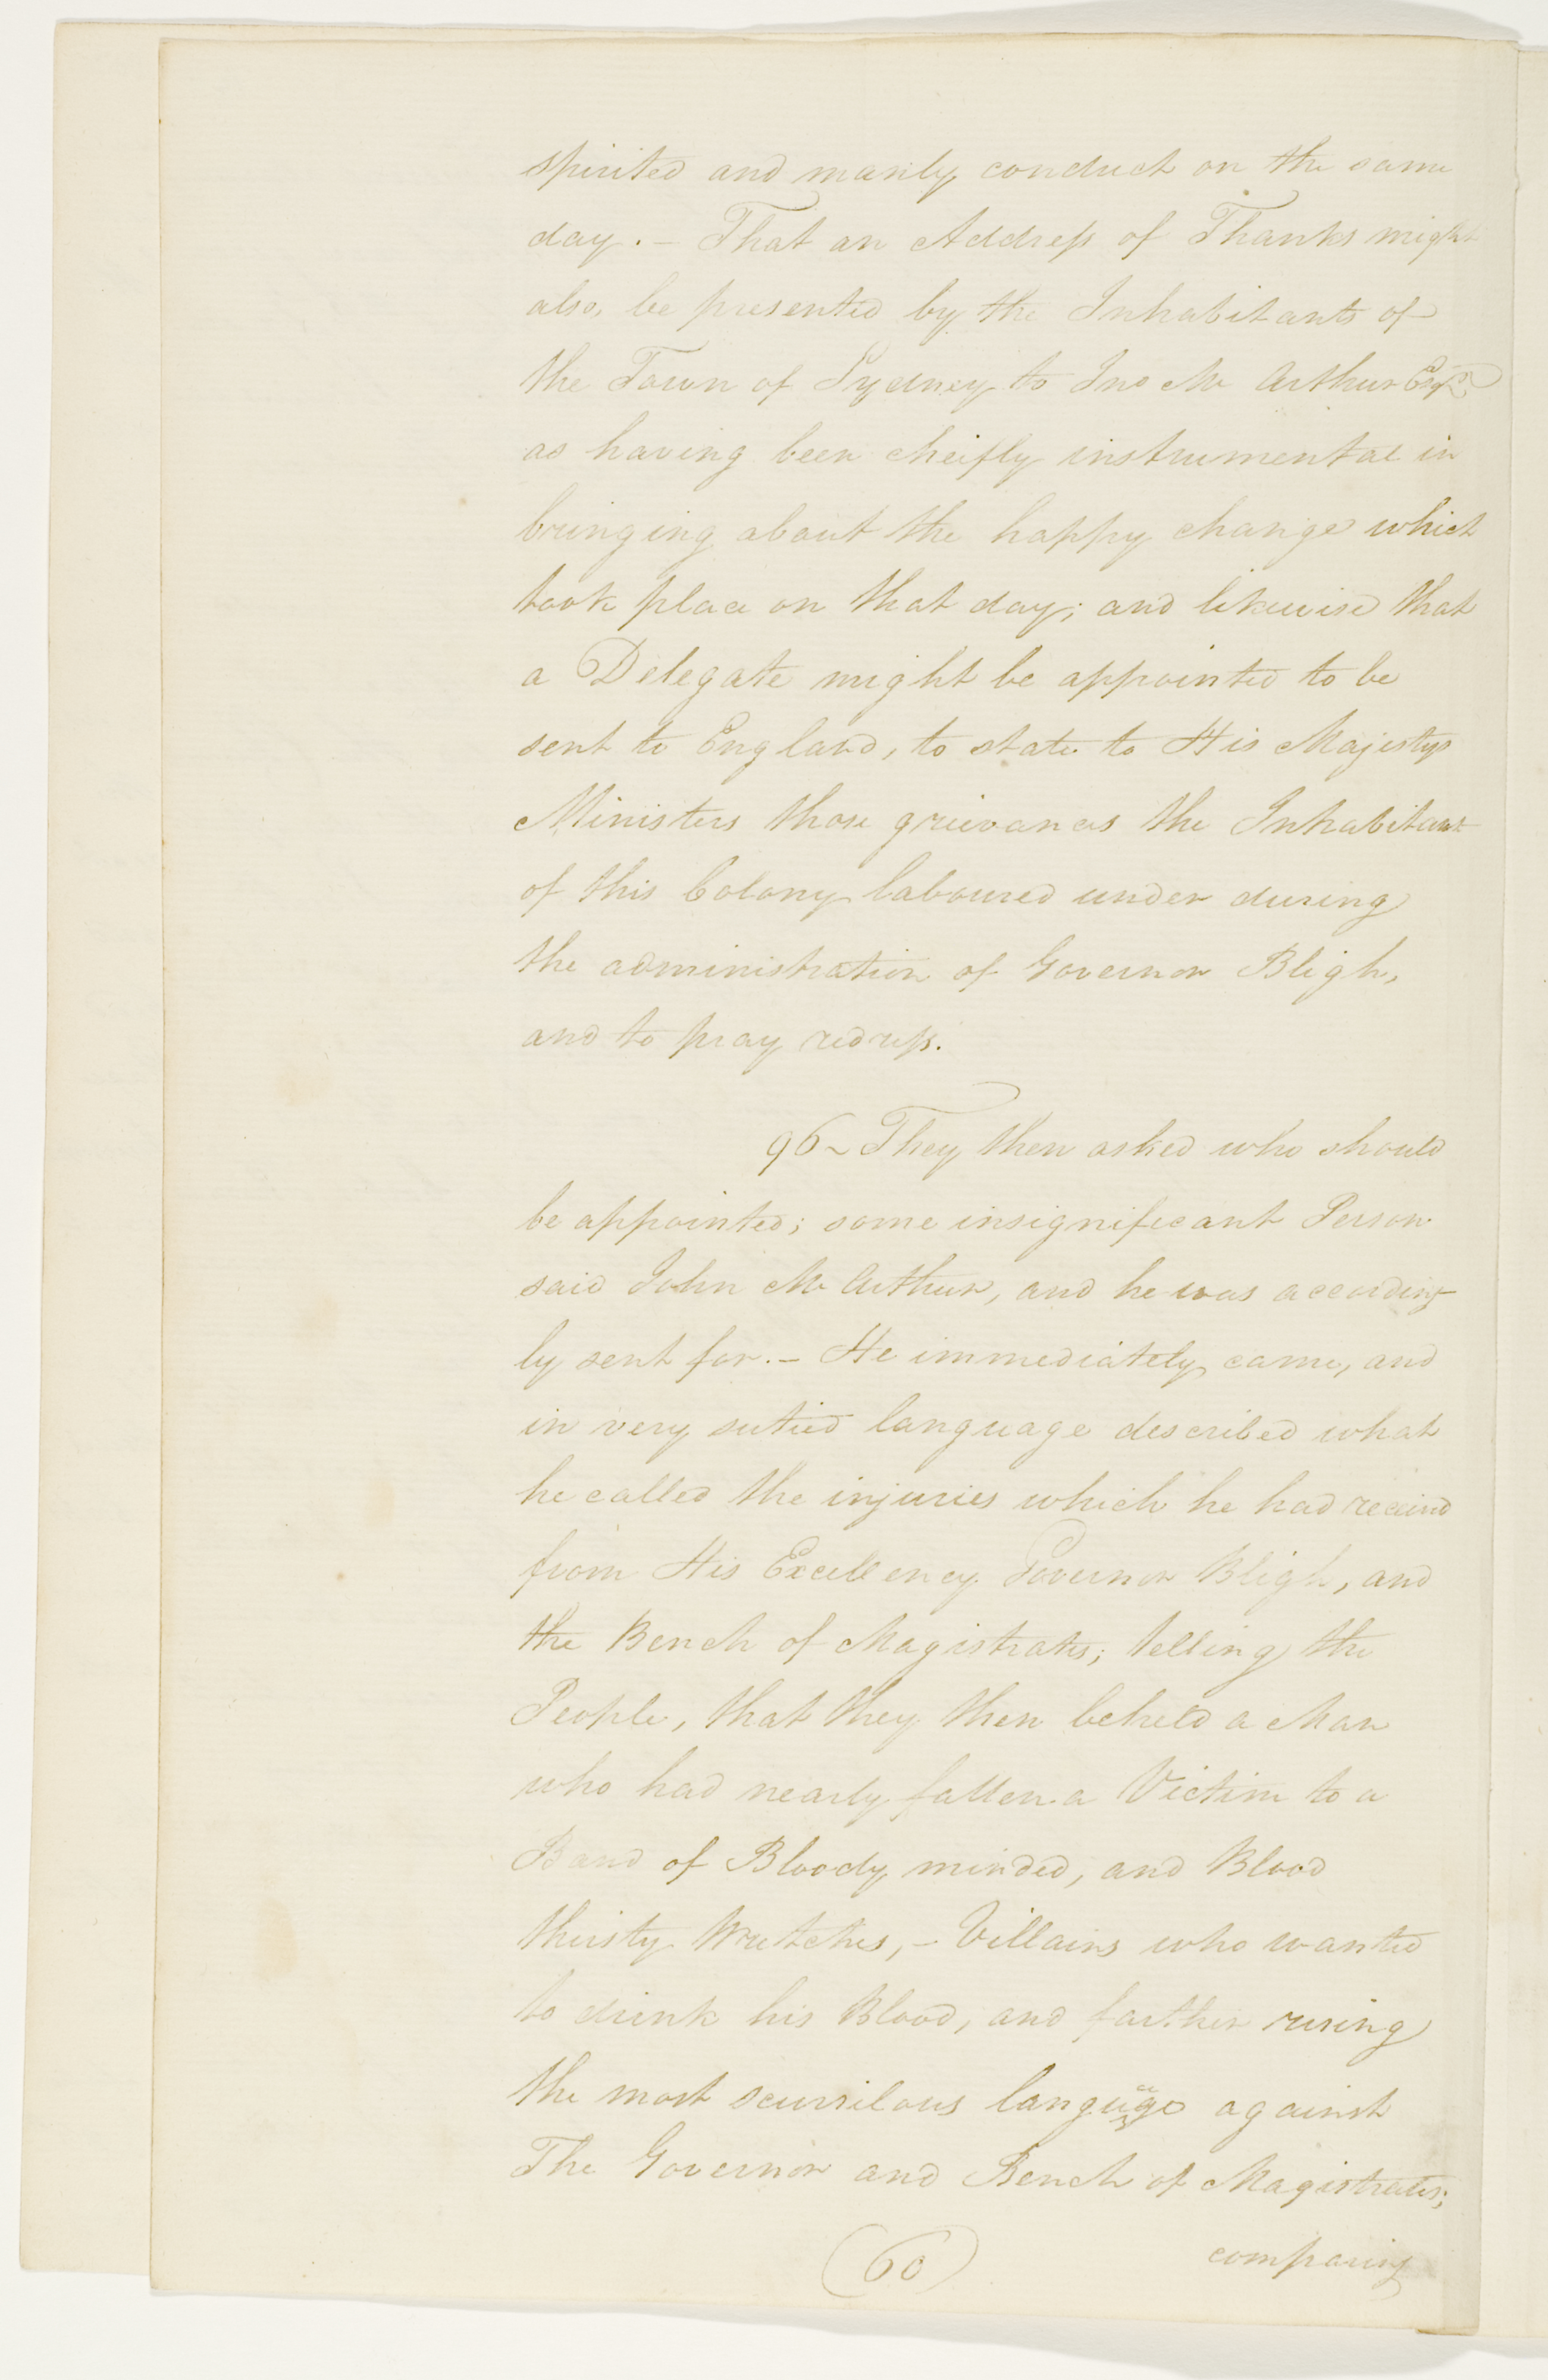 spirited and manly conduct on the same
day. - That an Address of Thanks might
also, be presented by the Inhabitants of
the Town of Sydney to Jno Mc Arthur Esqr
as having been cheifly instrumental in
bringing about the happy change which
took place on that day; and likewise that
a Delegate might be appointed to be
sent to England, to state to His Majestys
Ministers those grievances the Inhabitant
of this Colony laboured under during
the administration of Governor Bligh,
and to pray redress.
96 ~ They then asked who should
be appointed; some insignificant Person
said John Mc Arthur, and he was according
ly sent for. - He immediately came, and
in very language described what
he called the injuries which he had received
from His Excellency Governor Bligh, and
the Bench of Magistrates; telling the
People, that they then beheld a Man
who had nearly fallen a Victim to a
Band of Bloody minded, and Blood
thirsty Wretches, - Villains who wanted
to drink his Blood, and farther using
the most scurrilous language against
The Governor and Bench of Magistrates;
(60) comparing